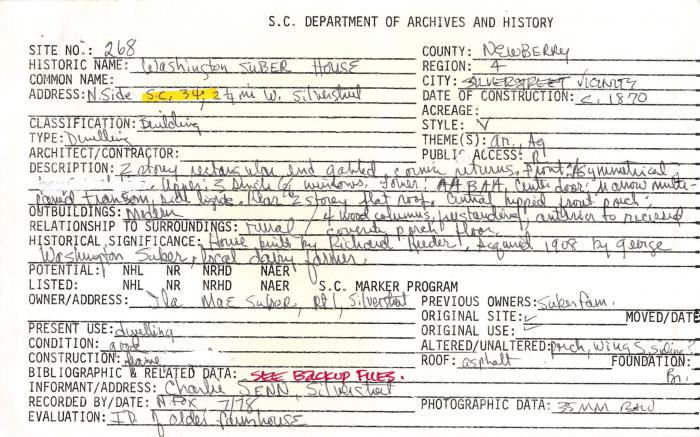 S.C. DEPARTMENT OF ARCHIVES AND HISTORY
SITE NO.: 268
COUNTY: NEWBERRY
HISTORIC NAME: Washington SUBER HOUSE
REGION: 4
COMMON NAME:
CITY: SILVERSTREET VICINITY
ADDRESS: N. Side S.C. 34, 2 1/4 mi W. Silverstreet
DATE OF CONSTRUCTION: c. 1870
ACREAGE:
CLASSIFICATION: Building
STYLE: V
TYPE: Dwelling
THEME(S): ar., Ag
ARCHITECT/CONTRACTOR:
PUBLIC ACCESS:
DESCRIPTION: 2 storey rectangular end gabled, cornice returns, Front: Asymmetrical
Upper: 3 single windows. Lower: AABAA, center door, narrow multi-
paned transom, side lights. Rear 2 storey flat roof. Central hipped front porch:
OUTBUILDINGS: Modern
4 wood columns, freestanding, anterior to recessed
RELATIONSHIP TO SURROUNDINGS: rural
porch floor.
HISTORICAL SIGNIFICANCE: House built by Richard Reeder, Acquired 1908 by George
Washington Suber, local dairy farmer.
POTENTIAL: NHL NR NRHD NAER
LISTED: NHL NR NRHD NAER S.C. MARKER PROGRAM
OWNER/ADDRESS: Ila Mae Suber, Rt 1, Silverstreet
PREVIOUS OWNERS: Suber fam.
ORIGINAL SITE: ✓ MOVED/DATE
PRESENT USE: dwelling
ORIGINAL USE:
CONDITION: good
ALTERED/UNALTERED: porch, wing, siding?
CONSTRUCTION: frame
ROOF: asphalt FOUNDATION:
Br.
BIBLIOGRAPHIC & RELATED DATA: SEE BACKUP FILES.
INFORMANT/ADDRESS: Charlie SENN, Silverstreet
RECORDED BY/DATE: N. Fox, 7/78
PHOTOGRAPHIC DATA: 35MM B&W
EVALUATION: ID of older farmhouse